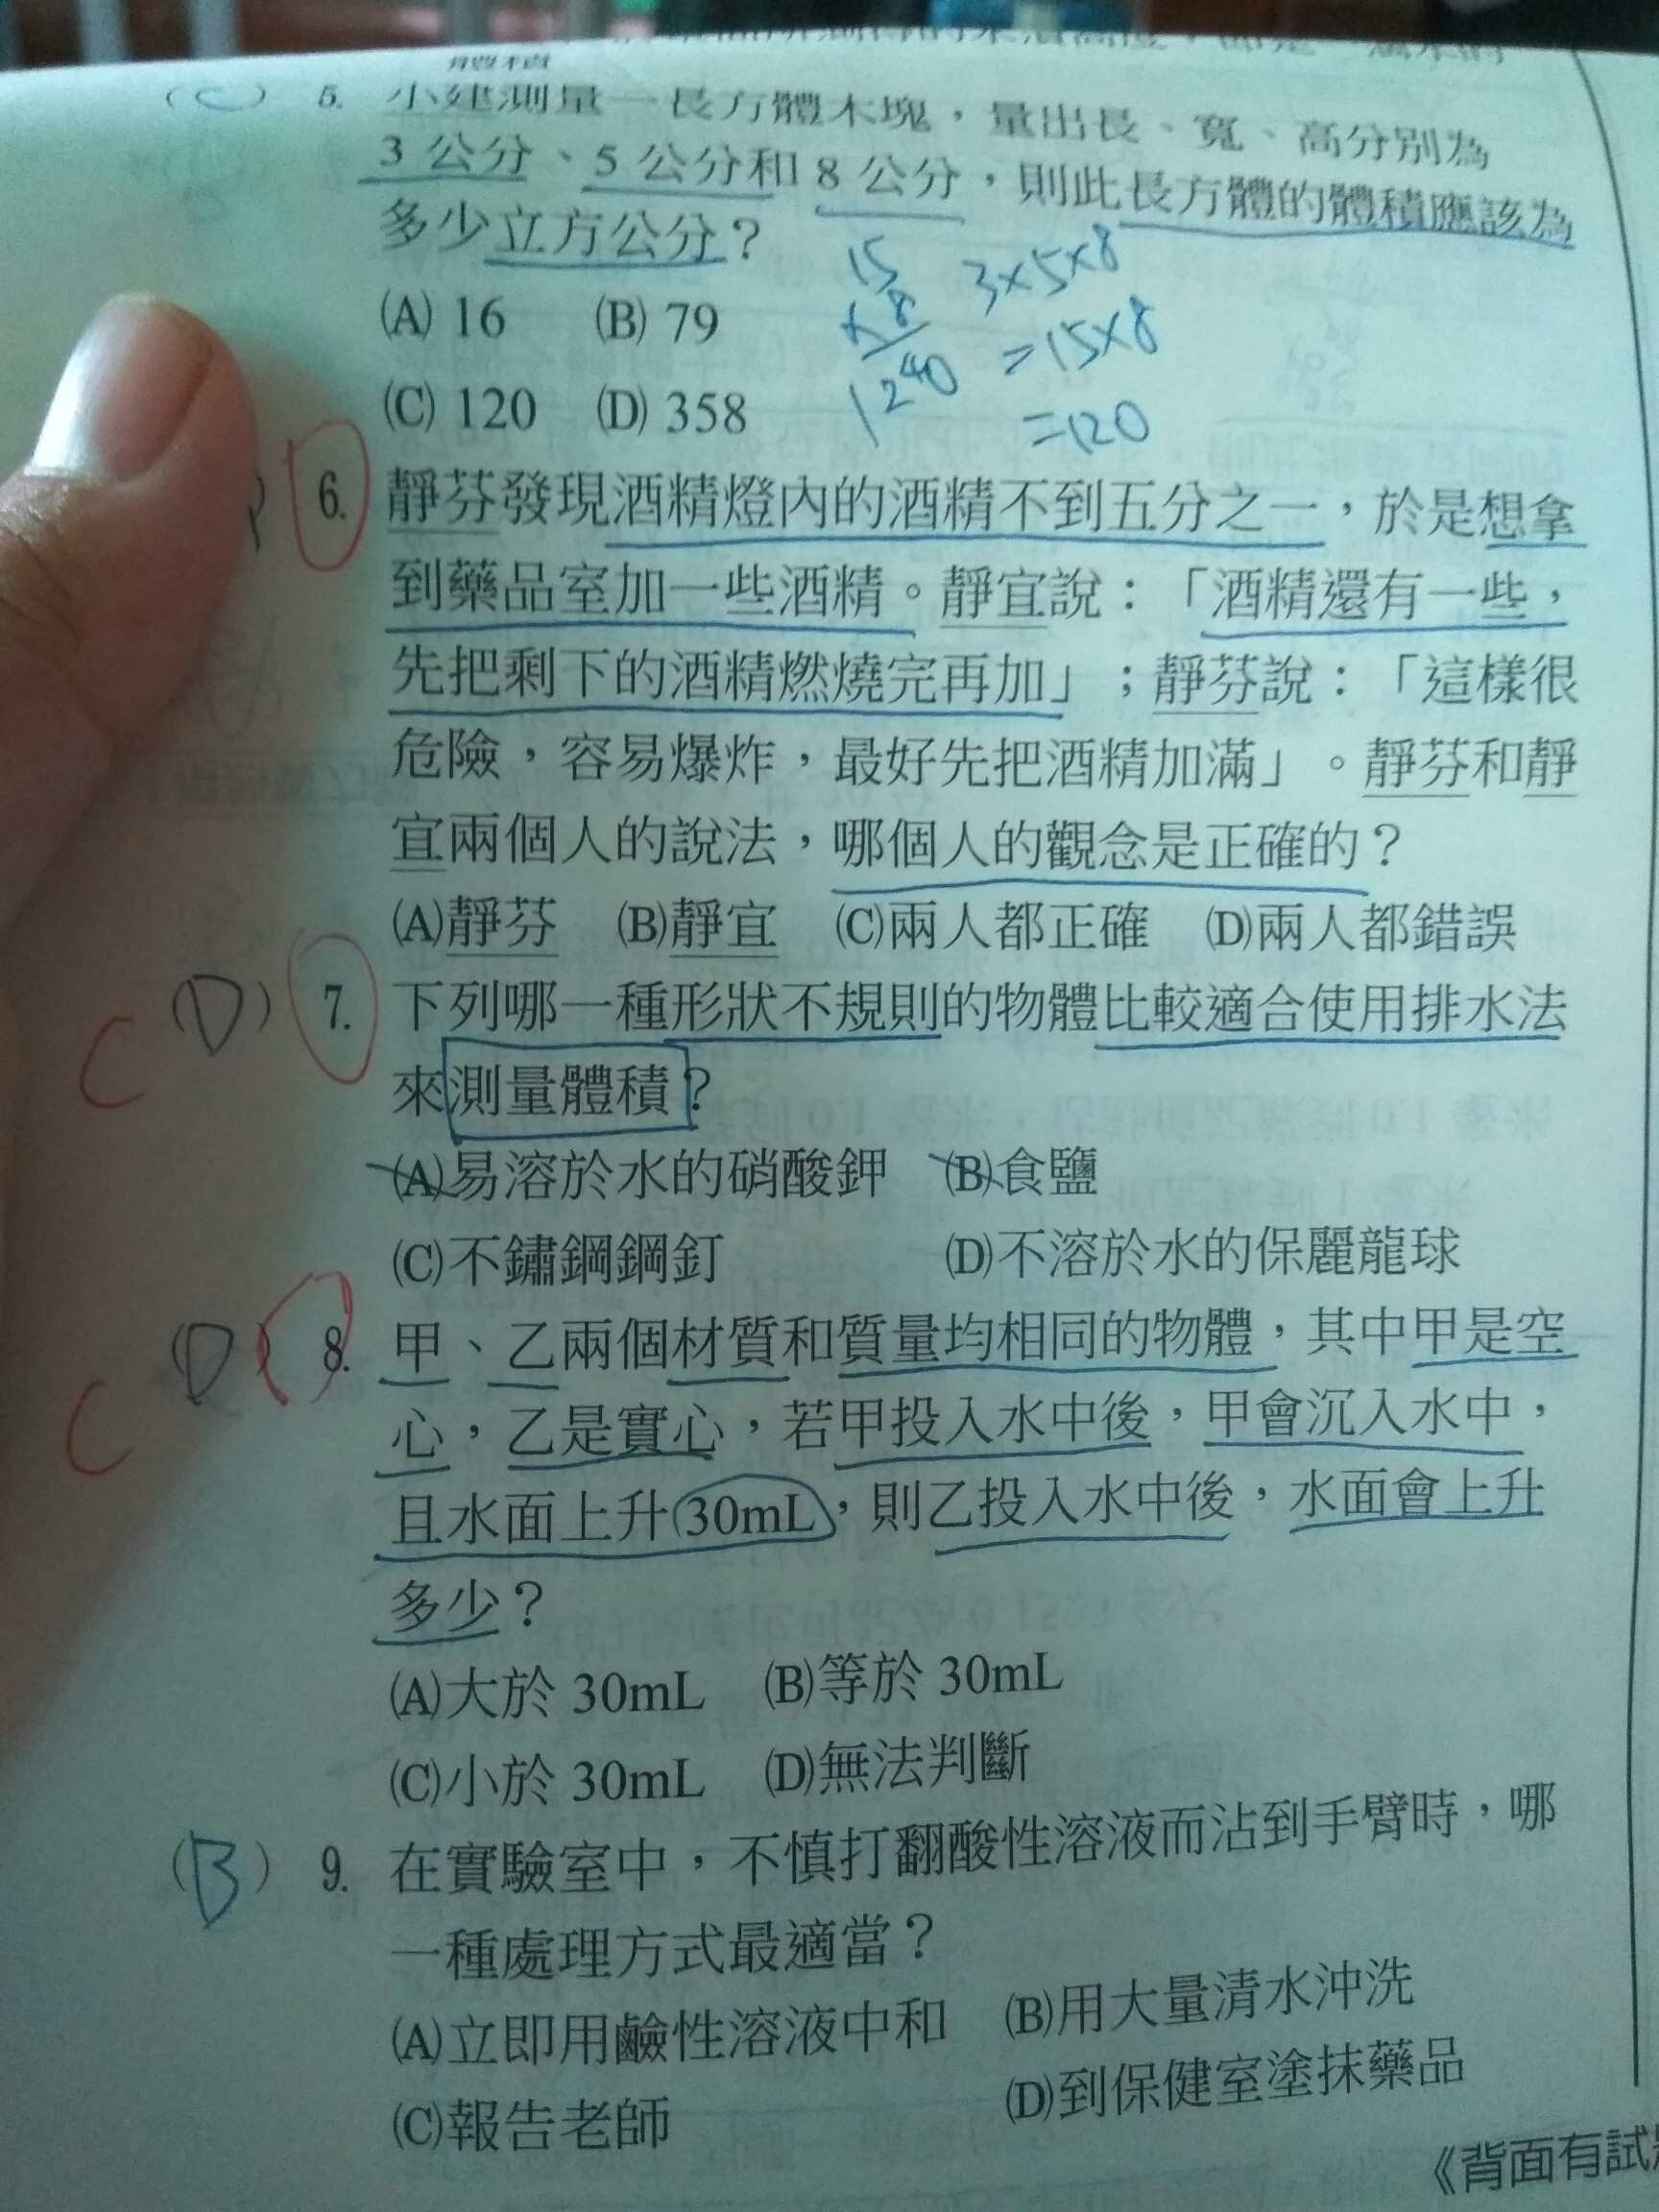 體積
(C) 5. 小建測量一長方體木塊，量出長、寬、高分別為
3 公分、5 公分和 8 公分，則此長方體的體積應該為
多少立方公分？
(A) 16 (B) 79
(C) 120 (D) 358
15
×8
1240
3×5×8
=15×8
=120
6. 靜芬發現酒精燈內的酒精不到五分之一，於是想拿
到藥品室加一些酒精。靜宜說：「酒精還有一些，
先把剩下的酒精燃燒完再加」；靜芬說：「這樣很
危險，容易爆炸，最好先把酒精加滿」。靜芬和靜
宜兩個人的說法，哪個人的觀念是正確的？
(A)靜芬 (B)靜宜 (C)兩人都正確 (D)兩人都錯誤
C (D) 7. 下列哪一種形狀不規則的物體比較適合使用排水法
來測量體積？
(A)易溶於水的硝酸鉀 (B)食鹽
(C)不鏽鋼鋼釘 (D)不溶於水的保麗龍球
C (D) 8. 甲、乙兩個材質和質量均相同的物體，其中甲是空
心，乙是實心，若甲投入水中後，甲會沉入水中，
且水面上升30mL，則乙投入水中後，水面會上升
多少？
(A)大於 30mL (B)等於 30mL
(C)小於 30mL (D)無法判斷
(B) 9. 在實驗室中，不慎打翻酸性溶液而沾到手臂時，哪
一種處理方式最適當？
(A)立即用鹼性溶液中和 (B)用大量清水沖洗
(C)報告老師 (D)到保健室塗抹藥品
《背面有試